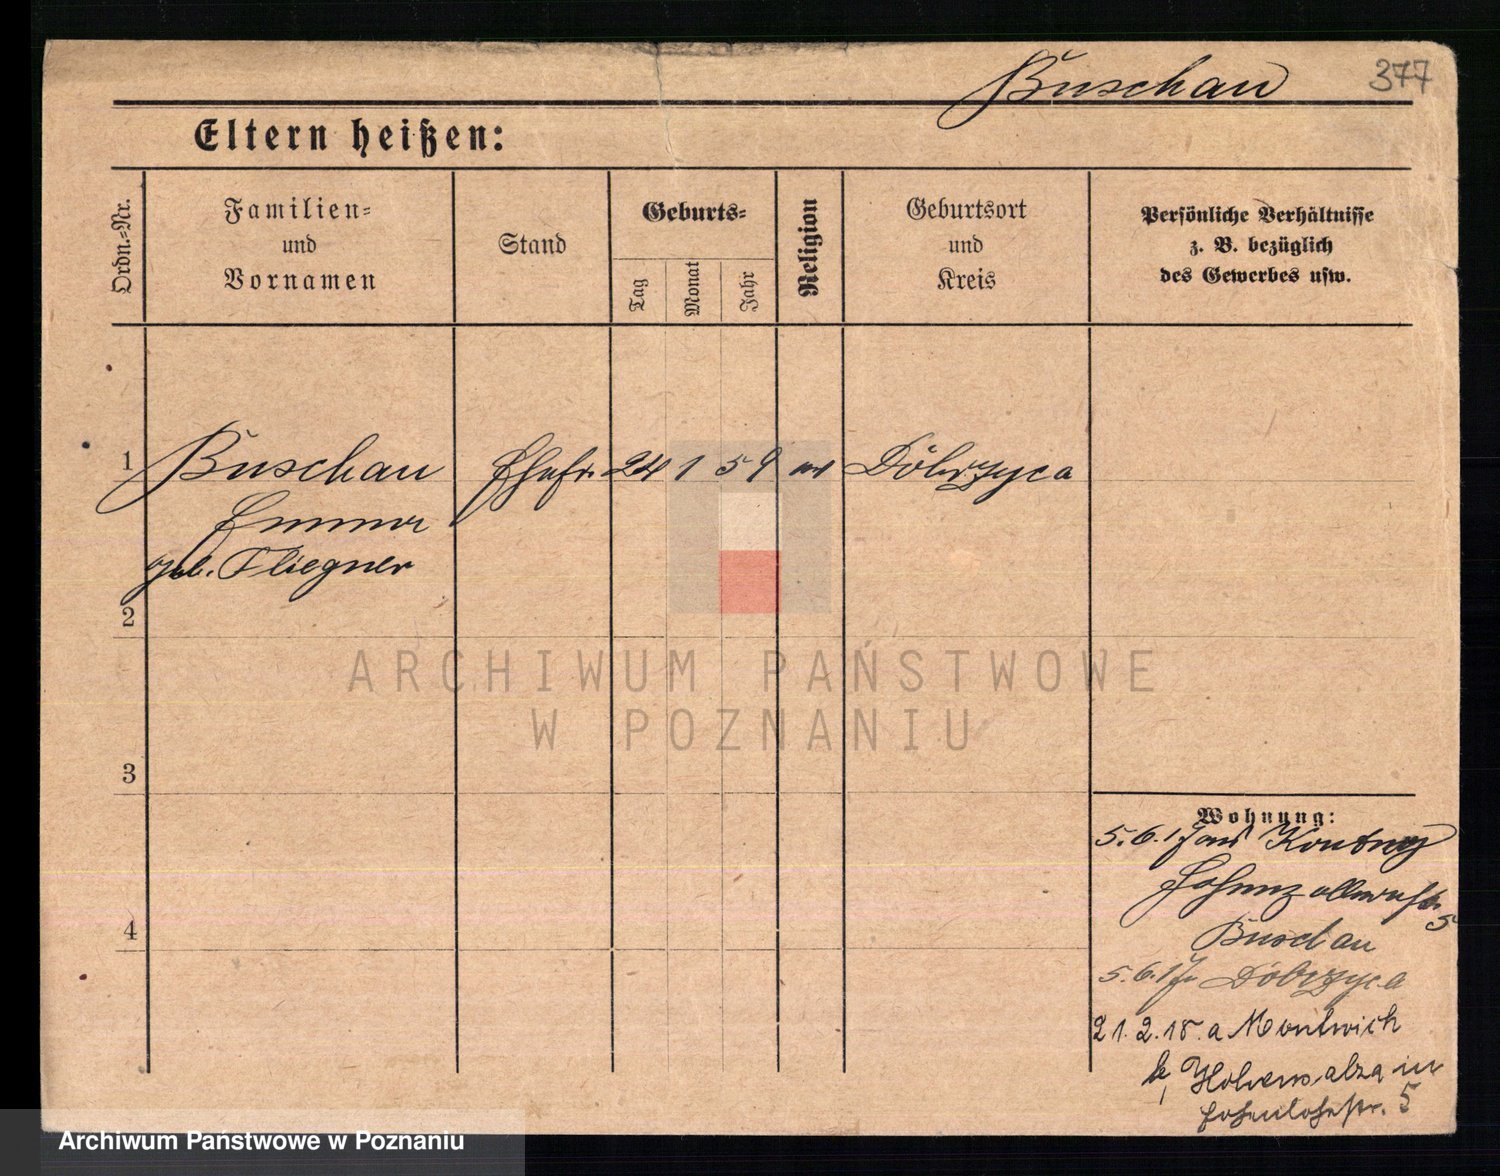 Buschau
377
Eltern heißen:
Ordn.-Nr.
Familien-
und
Vornamen
Stand
Geburts-
Tag
Monat
Jahr
Religion
Geburtsort
und
Kreis
Persönliche Verhältnisse
z. B. bezüglich
des Gewerbes usw.
1
Buschau Ehefr. 24 1 59 Dobrzyca
Emma
geb. Fliegner
2
3
4
Wohnung:
5. 6. 17
5
Buschau
5. 6. 17 Dobrzyca
21. 2. 18. a
Hohensalza
Hohenlohestr. 5
ARCHIWUM PAŃSTWOWE
W POZNANIU
Archiwum Państwowe w Poznaniu